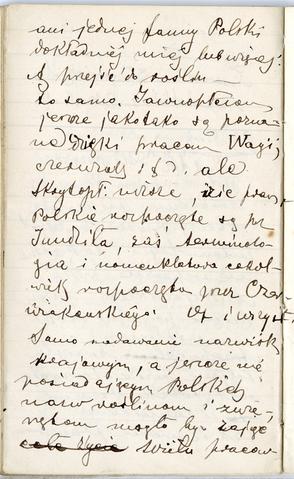 ani jednej fauny Polski
dokładniej mniej lub więcej:
A przejść do roślin —
to samo. Jawnopłciowe
jeszcze jako tako są pozna-
ne dzięki pracom Wagi,
i t d. ale
Skrytopł. niższe,
Polskie rozpoczęte są pr
Jundziła, zaś terminolo-
gia i nomenklatura cokol-
wiek rozpoczęta przez Czer
wiakowskiego. I wszyst.
Samo nadawanie nazwisk
krajowym, a jeszcze nie
posiadającym Polskiej
nazw roślinom i zwie-
rzętom mogło by zająć
całe życie wielu pracow